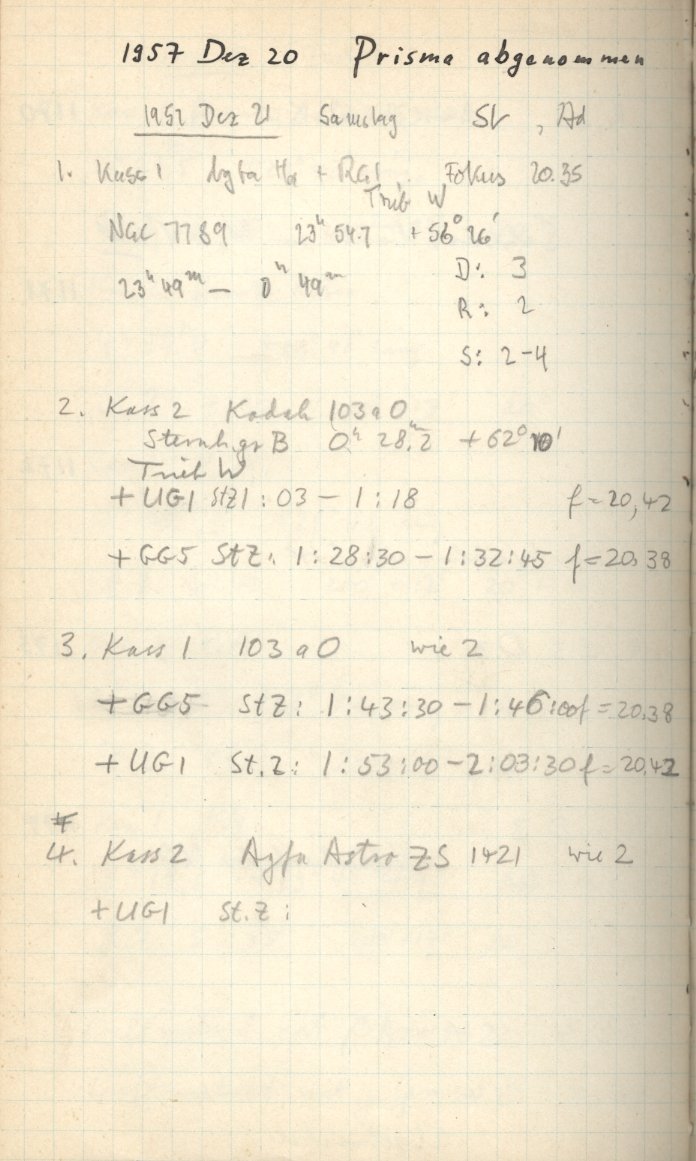 1957 Dez 20 Prisma abgenommen
1957 Dez 21 Samstag St, Ad
1. Kass 1 Agfa Hα + RG1 Fokus 20.35
Trieb W
NGC 7789 23ʰ 54.7 +56° 26'
23ʰ 49ᵐ — 0ʰ 49ᵐ
D: 3
R: 2
S: 2-4
2. Kass 2 Kodak 103aO
Sternh.gr B 0ʰ 28,2 +62° 10'
Trieb W
+UG1 StZ 1:03 — 1:18 f=20,42
+GG5 StZ: 1:28:30 — 1:32:45 f=20,38
3. Kass 1 103aO wie 2
+GG5 StZ: 1:43:30 — 1:46:00 f=20,38
+UG1 St.Z: 1:53:00 — 2:03:30 f=20,42
4. Kass 2 Agfa Astro ZS 1421 wie 2
+UG1 St.Z: